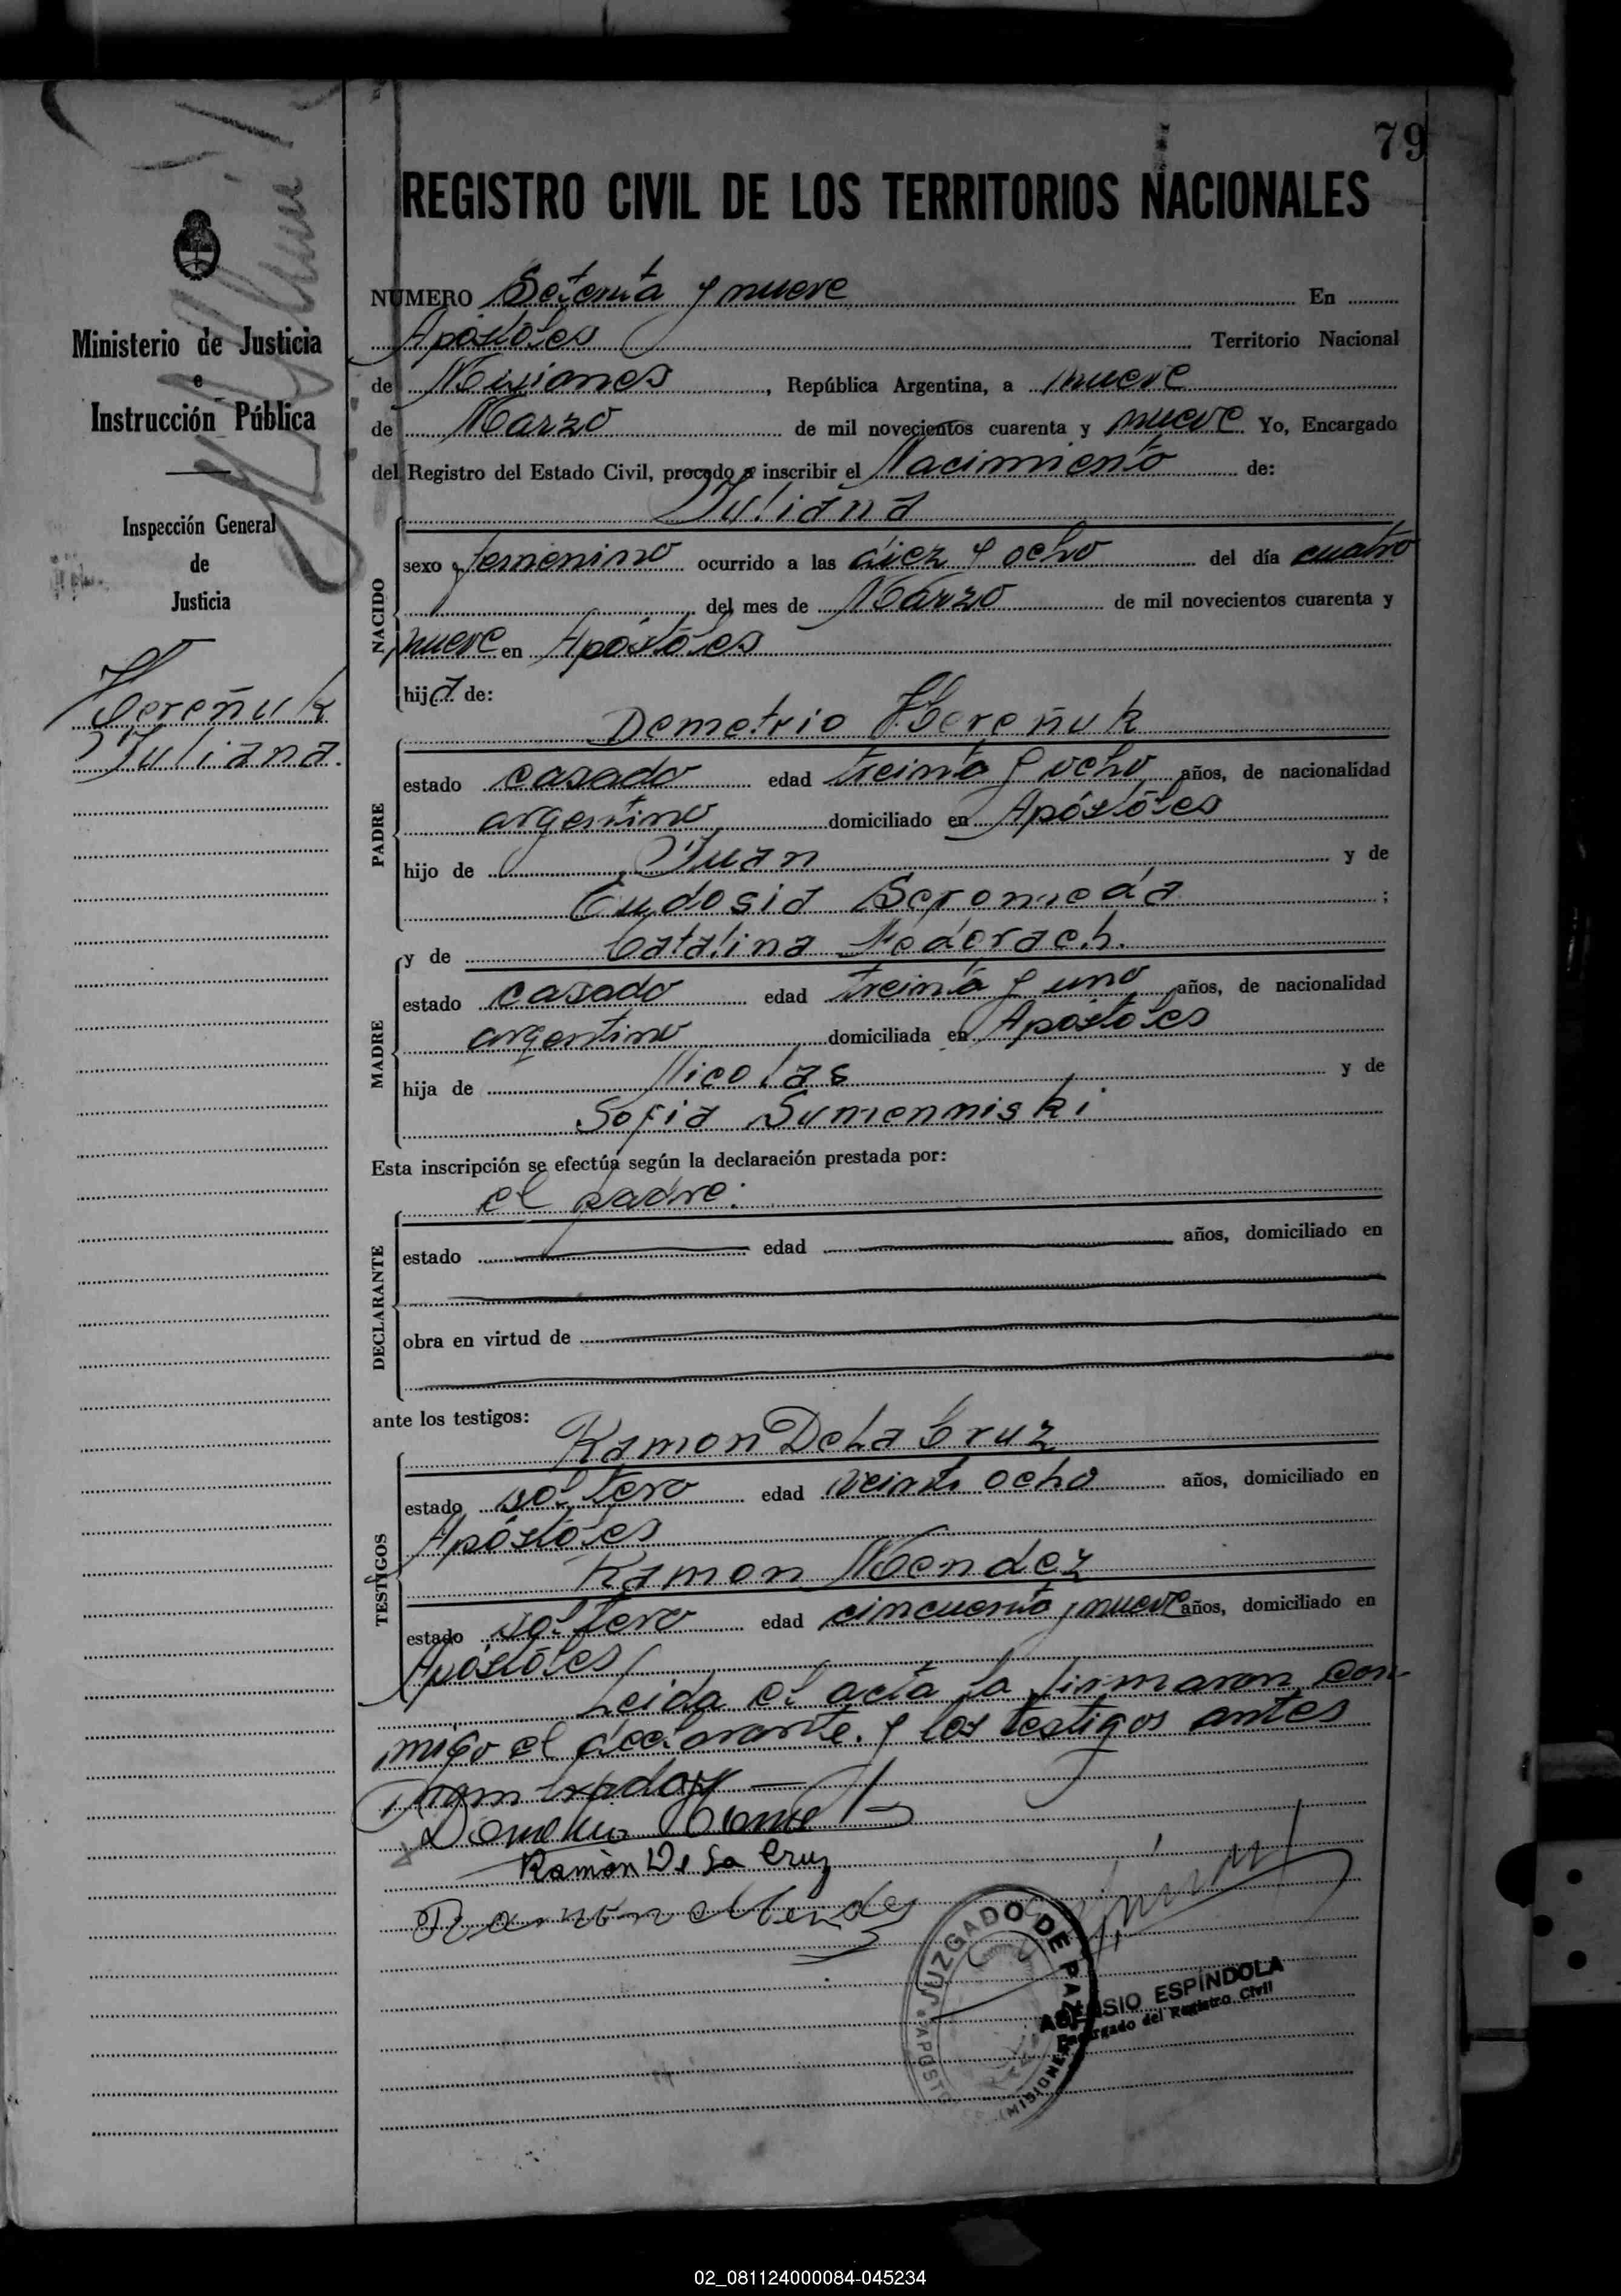 79
REGISTRO CIVIL DE LOS TERRITORIOS NACIONALES
Ministerio de Justicia
e
Instrucción Pública
Inspección General
de
Justicia
Hereñuk
Juliana.
NUMERO Setenta y nueve En
Apóstoles Territorio Nacional
de Misiones, República Argentina, a nueve
de Marzo de mil novecientos cuarenta y nueve Yo, Encargado
del Registro del Estado Civil, procedo a inscribir el Nacimiento de:
Juliana
NACIDO
sexo femenino ocurrido a las diez y ocho del día cuatro
del mes de Marzo de mil novecientos cuarenta y
nueve en Apóstoles
hija de:
Demetrio Hereñuk
PADRE
estado casado edad treinta y ocho años, de nacionalidad
argentino domiciliado en Apóstoles
hijo de Juan y de
Eudosia ;
y de Catalina Fedorach.
MADRE
estado casado edad treinta y uno años, de nacionalidad
argentino domiciliada en Apóstoles
hija de Nicolas y de
Sofia Sumenniski
Esta inscripción se efectúa según la declaración prestada por:
el padre.
DECLARANTE
estado edad años, domiciliado en
obra en virtud de
ante los testigos:
Ramon De La Cruz
TESTIGOS
estado soltero edad veinte ocho años, domiciliado en
Apóstoles
Ramon Mendez
estado soltero edad cincuenta y nueve años, domiciliado en
Apóstoles
Leida el acta la firmaron con-
migo el declarante. y los testigos antes
Demetrio
Ramón De La Cruz
Ramón Mendez
JUZGADO DE PAZ
APOSTO
(MISIONES
ESPÍNDOLA
Encargado del Registro Civil
02_081124000084-045234